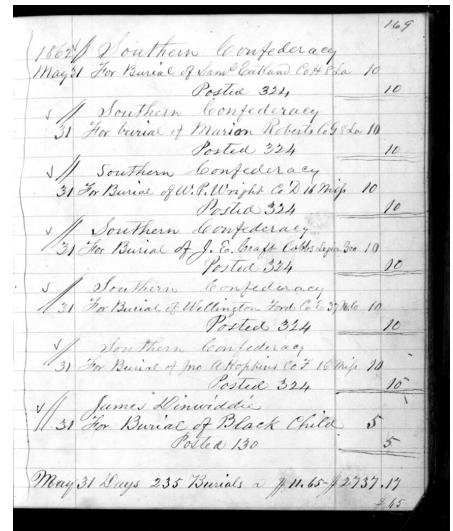 169
1862 // Southern Confederacy
May 31 For Burial of Saml Eatland Co H 8 La 10
Posted 324 10
✓ // Southern Confederacy
31 For burial of Marion Roberts Co G 8 La 10
Posted 324 10
✓ // Southern Confederacy
31 For Burial of W. P. Wright Co D 16 Miss 10
Posted 324 10
✓ // Southern Confederacy
31 For Burial of J. E. Craft Cobbs Legion Geo 10
Posted 324 10
✓ // Southern Confederacy
31 For Burial of Wellington Ford Co 37 10
Posted 324 10
✓ // Southern Confederacy
31 For Burial of Jno A Hopkins Co F 16 Miss 10
Posted 324 10
✓ // James Dinwiddie
31 For Burial of Black Child 5
Posted 130 5
May 31 Days 235 Burials a $11.65 - $2737.17